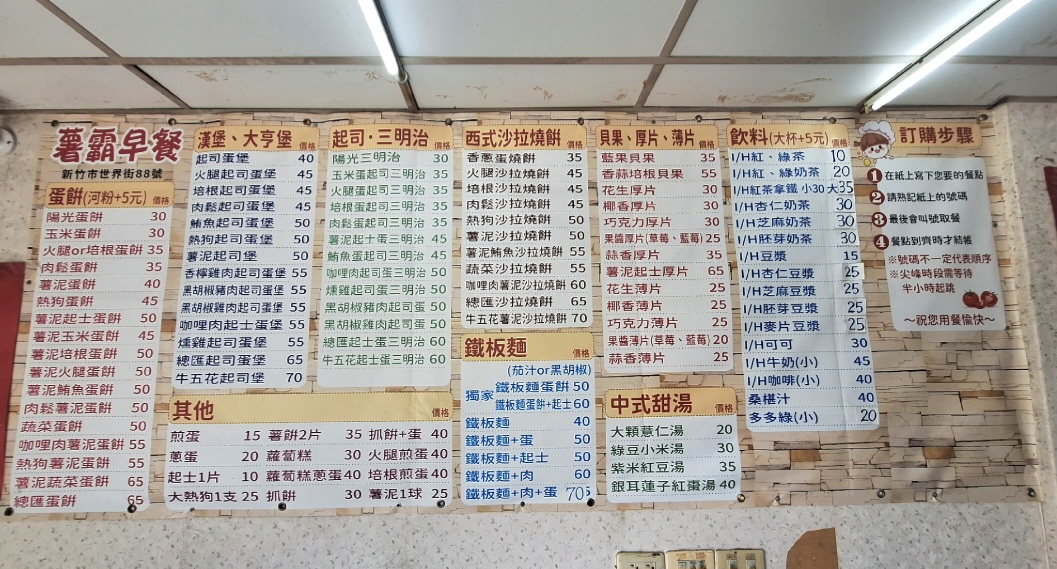 薯霸早餐
新竹市世界街88號
蛋餅(河粉+5元) 價格
陽光蛋餅 30
玉米蛋餅 30
火腿or培根蛋餅 35
肉鬆蛋餅 35
薯泥蛋餅 40
熱狗蛋餅 45
薯泥起士蛋餅 50
薯泥玉米蛋餅 45
薯泥培根蛋餅 50
薯泥火腿蛋餅 50
薯泥鮪魚蛋餅 50
肉鬆薯泥蛋餅 50
蔬菜蛋餅 50
咖哩肉薯泥蛋餅 55
熱狗薯泥蛋餅 55
薯泥蔬菜蛋餅 65
總匯蛋餅 65
漢堡、大亨堡 價格
起司蛋堡 40
火腿起司蛋堡 45
培根起司蛋堡 45
肉鬆起司蛋堡 45
鮪魚起司蛋堡 50
熱狗起司蛋堡 50
薯泥起司堡 50
香檸雞肉起司蛋堡 55
黑胡椒豬肉起司蛋堡 55
黑胡椒雞肉起司蛋堡 55
咖哩肉起士蛋堡 55
燻雞起司蛋堡 55
總匯起司蛋堡 65
牛五花起司堡 70
起司·三明治 價格
陽光三明治 30
玉米蛋起司三明治 35
火腿蛋起司三明治 35
培根蛋起司三明治 35
肉鬆蛋起司三明治 35
薯泥起士蛋三明治 45
鮪魚蛋起司三明治 45
咖哩肉起司蛋三明治 50
燻雞起司蛋三明治 50
黑胡椒豬肉起司蛋 50
黑胡椒雞肉起司蛋 50
總匯起士蛋三明治 60
牛五花起士蛋三明治 60
西式沙拉燒餅 價格
香蔥蛋燒餅 35
火腿沙拉燒餅 45
培根沙拉燒餅 45
肉鬆沙拉燒餅 45
熱狗沙拉燒餅 50
薯泥沙拉燒餅 50
薯泥鮪魚沙拉燒餅 55
蔬菜沙拉燒餅 55
咖哩肉薯泥沙拉燒餅 60
總匯沙拉燒餅 65
牛五花薯泥沙拉燒餅 70
鐵板麵 價格
(茄汁or黑胡椒)
獨家
鐵板麵蛋餅 50
鐵板麵蛋餅+起士 60
鐵板麵 40
鐵板麵+蛋 50
鐵板麵+起士 50
鐵板麵+肉 60
鐵板麵+肉+蛋 70
貝果、厚片、薄片 價格
藍果貝果 35
香蒜培根貝果 55
花生厚片 30
椰香厚片 30
巧克力厚片 30
果醬厚片(草莓、藍莓) 25
蒜香厚片 35
薯泥起士厚片 65
花生薄片 25
椰香薄片 25
巧克力薄片 25
果醬薄片(草莓、藍莓) 20
蒜香薄片 25
中式甜湯 價格
大顆薏仁湯 20
綠豆小米湯 30
紫米紅豆湯 35
銀耳蓮子紅棗湯 40
飲料(大杯+5元) 價格
I/H紅、綠茶 10
I/H紅、綠奶茶 20
I/H紅茶拿鐵 小30 大35
I/H杏仁奶茶 30
I/H芝麻奶茶 30
I/H胚芽奶茶 30
I/H豆漿 15
I/H杏仁豆漿 25
I/H芝麻豆漿 25
I/H胚芽豆漿 25
I/H麥片豆漿 25
I/H可可 30
I/H牛奶(小) 45
I/H咖啡(小) 40
桑椹汁 40
多多綠(小) 20
訂購步驟
1 在紙上寫下您要的餐點
2 請熟記紙上的號碼
3 最後會叫號取餐
4 餐點到齊時才結帳
※號碼不一定代表順序
※尖峰時段需等待
半小時起跳
～祝您用餐愉快～
其他 價格
煎蛋 15 薯餅2片 35 抓餅+蛋 40
蔥蛋 20 蘿蔔糕 30 火腿煎蛋 40
起士1片 10 蘿蔔糕蔥蛋 40 培根煎蛋 40
大熱狗1支 25 抓餅 30 薯泥1球 25